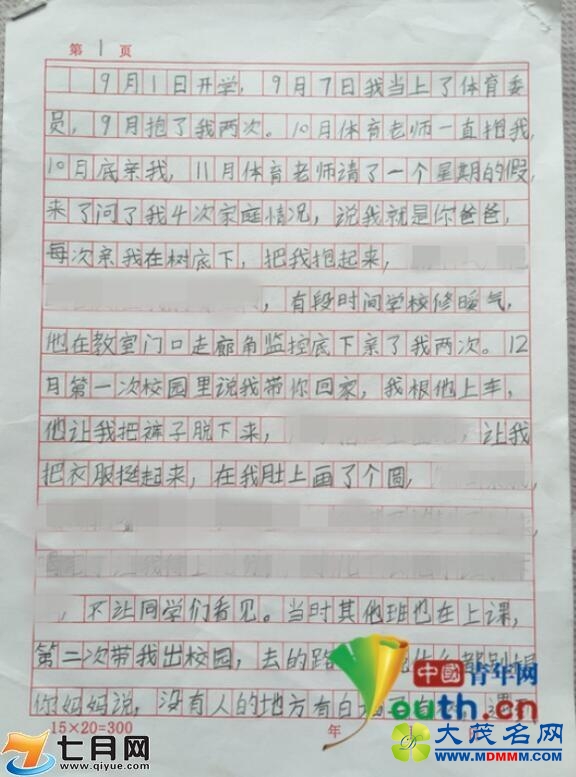 第 1 页
9月1日开学，9月7日我当上了体育委
员，9月抱了我两次。10月体育老师一直抱我，
10月底亲我，11月体育老师请了一个星期的假，
来了问了我4次家庭情况，说我就是你爸爸，
每次亲我在树底下，把我抱起来，
，有段时间学校修暖气，
他在教室门口走廊角监控底下亲了我两次。12
月第一次校园里说我带你回家，我根他上车，
他让我把裤子脱下来，让我
把衣服挺起来，在我肚上画了个圆，
，不让同学们看见。当时其他班也在上课，
第二次带我出校园，去的路
你妈妈说，没有人的地方有白
15×20=300 年
中國青年网
youth.cn
七月网
www.qiyue.com
大茂名网
www.MDMMM.com